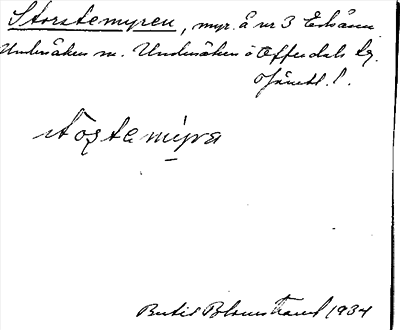 Storstemyren, myr. å nr 3
Undersåker sn. Undersåkers o Offerdals tg.
Jämtl. l.
stos̩temyra
Bertil Blomstrand 1934